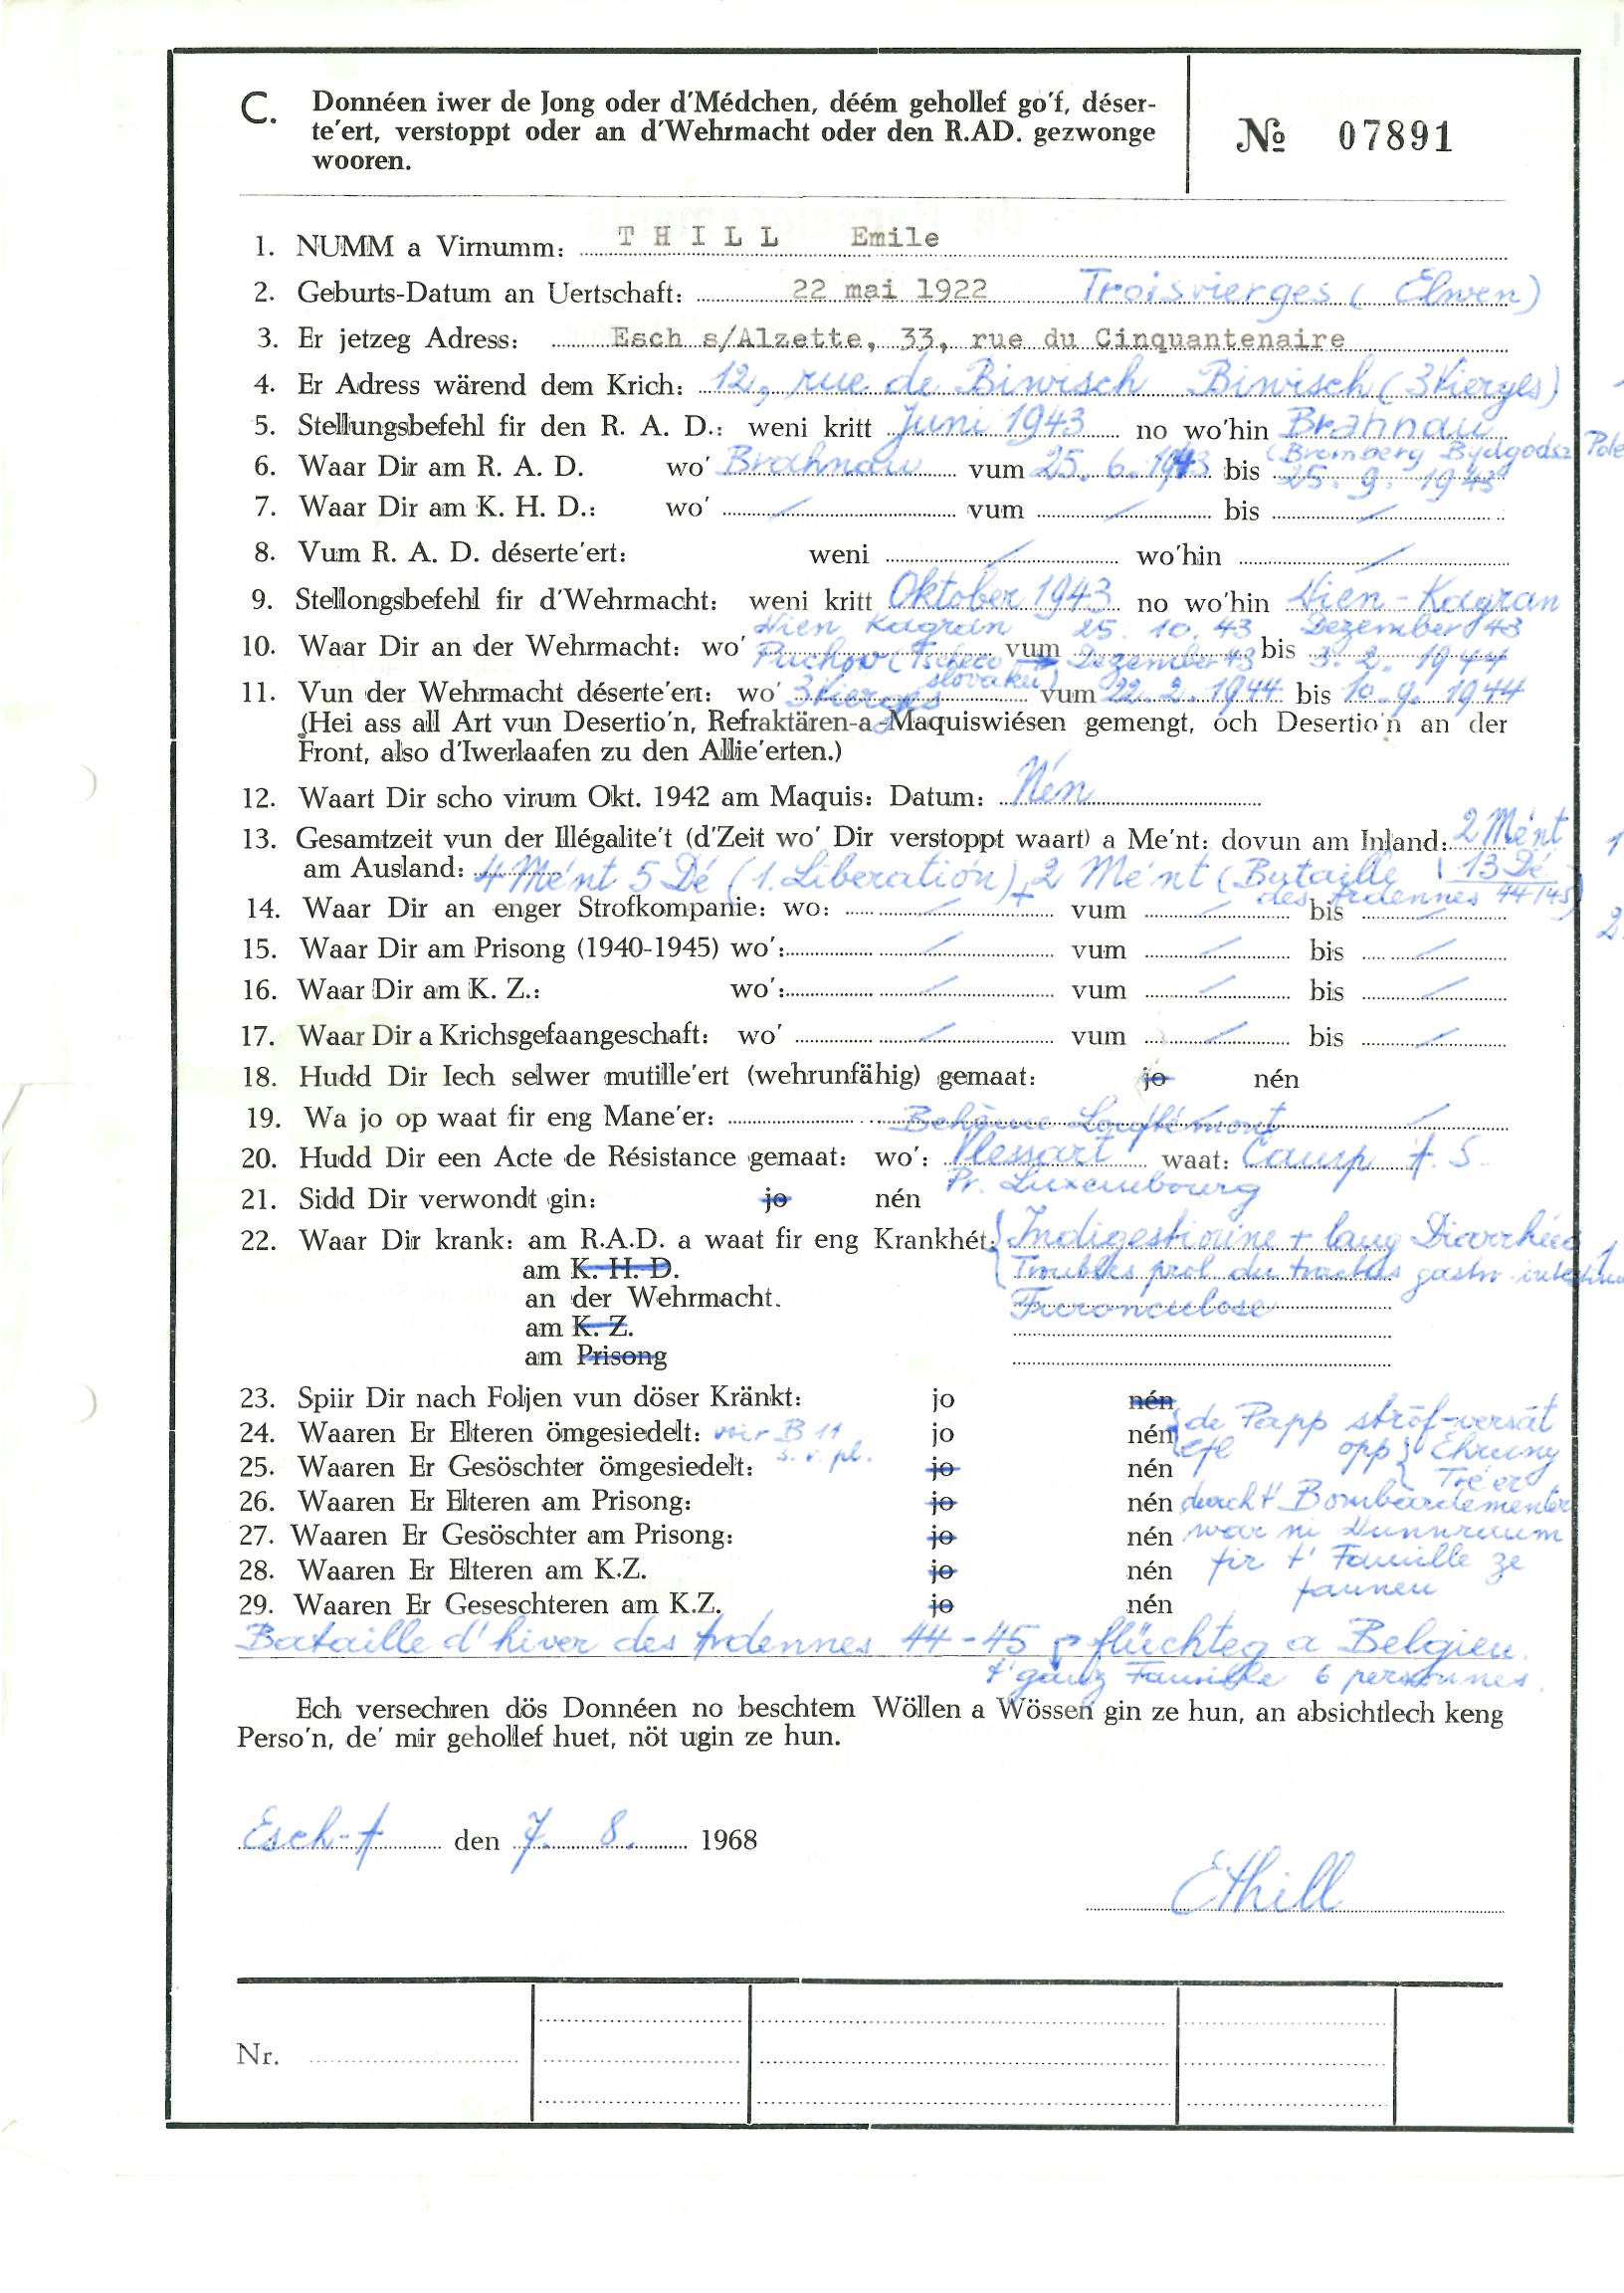 C. Donnéen iwer de Jong oder d'Médchen, déém gehollef go'f, déser-
te'ert, verstoppt oder an d'Wehrmacht oder den R.AD. gezwonge
wooren.
№ 07891
1. NUMM a Virnumm: THILL Emile
2. Geburts-Datum an Uertschaft: 22 mai 1922 Troisvierges (Elwen)
3. Er jetzeg Adress: Esch s/Alzette, 33, rue du Cinquantenaire
4. Er Adress wärend dem Krich: 12, rue de Biwisch Biwisch (3Vierges)
5. Stellungsbefehl fir den R. A. D.: weni kritt Juni 1943 no wo'hin Brahnau
(Bromberg Bydgodsz Pole
6. Waar Dir am R. A. D. wo' Brahnau vum 25. 6. 1943 bis 25. 9. 1943
7. Waar Dir am K. H. D.: wo' / vum / bis /
8. Vum R. A. D. déserte'ert: weni / wo'hin /
9. Stellongsbefehl fir d'Wehrmacht: weni kritt Oktober 1943 no wo'hin Wien-Kagran
Wien Kagran 25. 10. 43 Dezember 43
10. Waar Dir an der Wehrmacht: wo' Puchow (Tscheco slovakei) vum Dezember 43 bis 3. 2. 1944
11. Vun der Wehrmacht déserte'ert: wo' 3Vierges vum 22. 2. 1944 bis 10. 9. 1944
(Hei ass all Art vun Desertio'n, Refraktären-a-Maquiswiésen gemengt, och Desertio'n an der
Front, also d'Iwerlaafen zu den Allie'erten.)
12. Waart Dir scho virum Okt. 1942 am Maquis: Datum: Nén
13. Gesamtzeit vun der Illégalite't (d'Zeit wo' Dir verstoppt waart) a Me'nt: dovun am Inland: 2 Mént
13 Dé
am Ausland: 4 Mé'nt 5 Dé (1. Liberation) + 2 Mé'nt (Bataille
des Ardennes 44/45)
14. Waar Dir an enger Strofkompanie: wo: / vum / bis /
15. Waar Dir am Prisong (1940-1945) wo': / vum / bis /
16. Waar Dir am K. Z.: wo': / vum / bis /
17. Waar Dir a Krichsgefaangeschaft: wo' / vum / bis /
18. Hudd Dir Iech selwer mutille'ert (wehrunfähig) gemaat: jo nén
19. Wa jo op waat fir eng Mane'er: /
Behême Louftémont
20. Hudd Dir een Acte de Résistance gemaat: wo': Vlessart waat: Camp A. S.
Pr. Luxembourg
21. Sidd Dir verwondt gin: jo nén
22. Waar Dir krank: am R.A.D. a waat fir eng Krankhét: Indigestioune + lang Diarrhée
am K. H. D. Troubles prol. du tractus gastro-intestinal
an der Wehrmacht. Furonculose
am K. Z.
am Prisong
23. Spiir Dir nach Foljen vun döser Kränkt: jo nén
24. Waaren Er Elteren ömgesiedelt: voir B 11 s. v. pl. jo nén de Papp strôf-versät
opp Ehrang
Tre'er
25. Waaren Er Gesöschter ömgesiedelt: jo nén
26. Waaren Er Elteren am Prisong: jo nén durch t' Bombardementer
27. Waaren Er Gesöschter am Prisong: jo nén war ni Wunnraum
28. Waaren Er Elteren am K.Z. jo nén fir t' Famille ze
fannen
29. Waaren Er Geseschteren am K.Z. jo nén
Bataille d'hiver des Ardennes 44-45 flüchteg a Belgien.
t' ganz Famille 6 personnes.
Ech versechren dös Donnéen no beschtem Wöllen a Wössen gin ze hun, an absichtlech keng
Perso'n, de' mir gehollef huet, nöt ugin ze hun.
Esch-A den 7. 8. 1968
EThill
Nr.